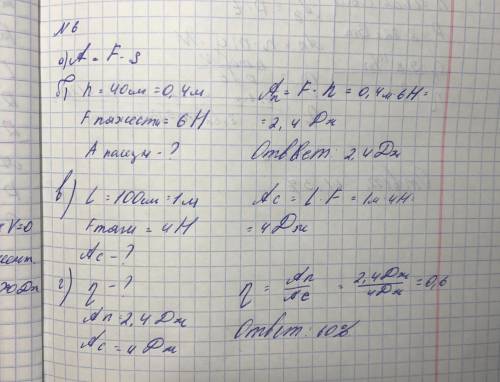 №6
а) A = F · S
б) h = 40см = 0,4м
Fтяжести = 6H
A полезн - ?
Aп = F · h = 0,4м 6H =
= 2,4 Дж
Ответ: 2,4 Дж
в) l = 100см = 1м
Fтяги = 4H
Ac - ?
Ac = l · F = 1м · 4H
= 4 Дж
г) η - ?
Aп = 2,4 Дж
Ac = 4 Дж
η = Aп/Ac = 2,4Дж/4Дж = 0,6
Ответ: 60%
V=0